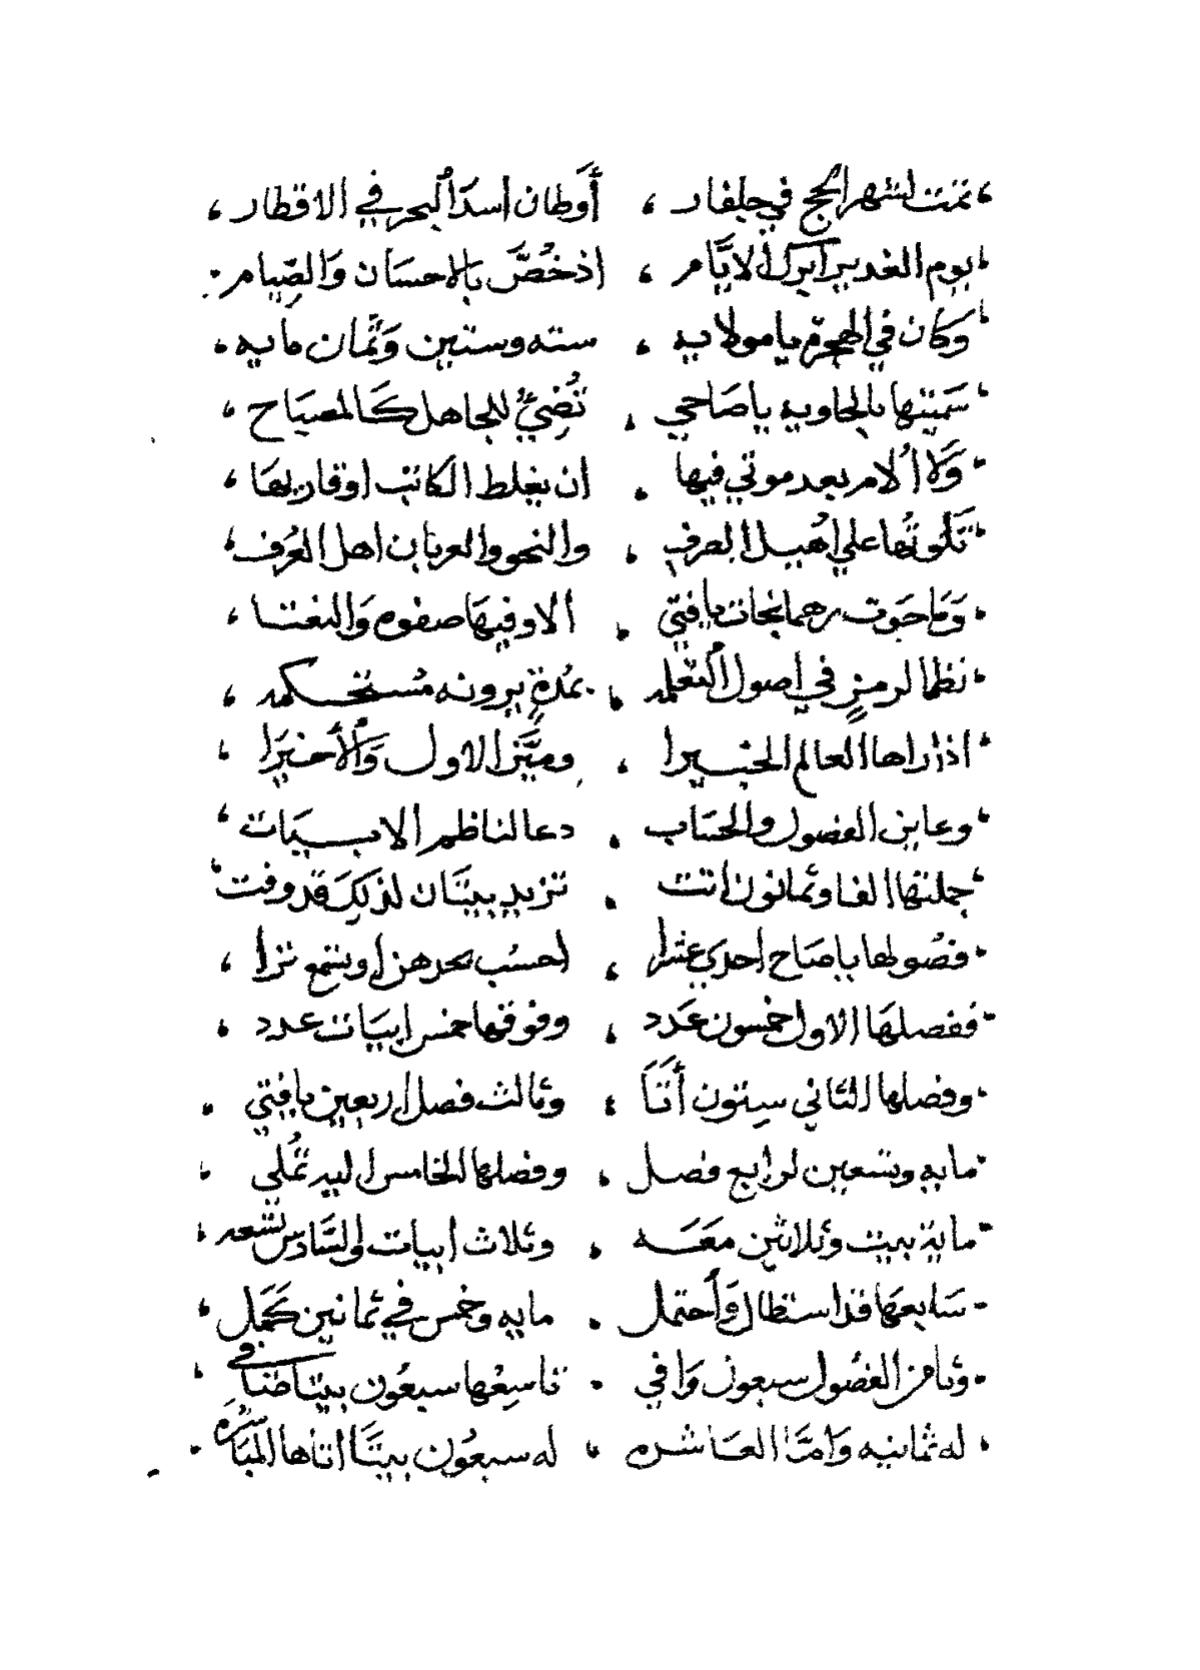 تمت لشهر الحج في جلفار ، أوطان اسد البحر في الاقطار ،
يوم الغدير ابرك الايّام ، اذ خُصَّ بالاحسان والصِّيام
وكان في الهجرة يا مولايه ، سته وستين وثمان مايه
سميتها بالحاويه يا صاحي ، تُضيُ للجاهل كالمصباح ،
ولا أُلام بعد موتي فيها ، ان يغلط الكاتب او قاريها ،
تلوتُها علي اُهيل الصرف ، والنحو والعربان اهل العُرف
وما حوت رهمانجات يا فتي ، الا وفيها صفوه والنعتا ،
نظمًا لرمزٍ في اصول المعلمه ، عُدةٍ يرونه مُستحكمه ،
اذا راها العالم الخبيرا ، وميَّز الاول والأخيرا ،
وعاين الفصول والحساب ، دعا لناظم الابيات
جملتها الفا وثمانون اتت ، تزيد بيتان لذلك قد وفت
فصُولها يا صاح احدي عشرا ، احسُب بحرهن او بنتمع نرا ،
ففصلها الاول خمسون عَدد ، وفوقها خمس ابيات عدد ،
وفصلها الثاني سِتون أتَا ، وثالث فصل اربعين يا فتي
مايه وتسعين لرابع فصل ، وفصلها الخامس اليه تُملي ،
ماية بيت وثلاثين معه ، وثلاث ابيات والسَّادس تسعه ،
سابعها قد استطال وأحتمل ، مايه وخمس في ثمانين كمل
وثامن الفصُول سبعون وافي ، تاسعُها سبعُون بيتا طنا في
له ثمانيه وامَّا العاشره ، له سبعُون بيتَا اتاها المباشره